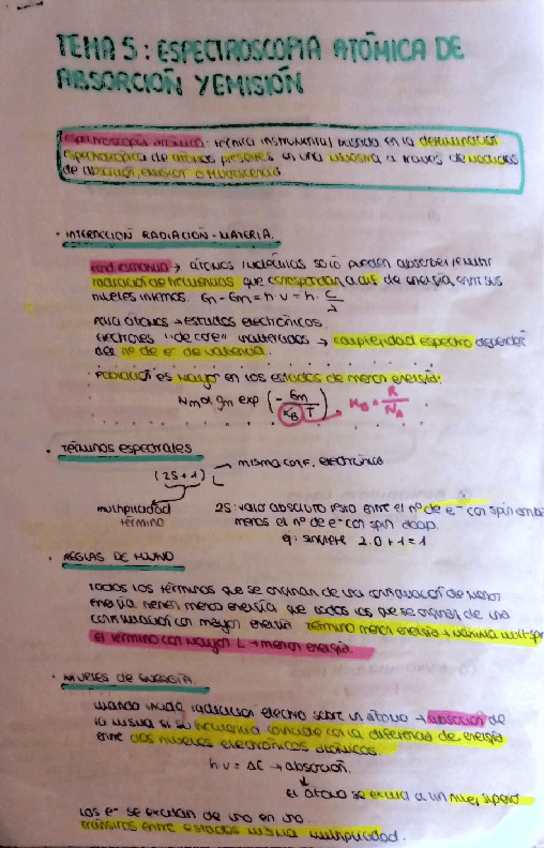 TEMA 5: ESPECTROSCOPIA ATÓMICA DE
ABSORCIÓN Y EMISIÓN
espectroscopia atómica: técnica instrumental basada en la determinación
espectroscópica de átomos presentes en una muestra a través de medidas
de absorción, emisión o fluorescencia
· INTERACCIÓN RADIACIÓN-MATERIA.
cond resonancia → átomos/moléculas solo pueden absorber/emitir
radiación de frecuencias que correspondan a dif de energía entre sus
niveles internos. En - Em = h ν = h · C/λ
Para átomos → estados electrónicos.
Electrones "de core" inalterados → complejidad espectro dependen
del nº de e⁻ de valencia.
Población es mayor en los estados de menor energía:
Nm α gm exp (- Em / K_B T) K_B = R/N_A
· TÉRMINOS ESPECTRALES
(2S+1) L → misma conf. electrónica
multiplicidad término
2S: valor absoluto resta entre el nº de e⁻ con spin
menos el nº de e⁻ con spin
ej: singlete 2·0+1=1
· REGLAS DE HUND
Todos los términos que se originan de una configuración de menor
energía tienen menor energía que todos los que se originan de una
configuración con mayor energía. Término menor energía → máxima
El término con mayor L → menor energía.
· NIVELES DE ENERGÍA.
cuando incide radiación electro sobre un átomo → absorción de
la misma si su frecuencia coincide con la diferencia de energía
entre dos niveles electrónicos atómicos.
h ν = ΔE → absorción.
El átomo se excita a un nivel superior
Los e⁻ se excitan de uno en uno
Tránsitos entre estados misma multiplicidad.